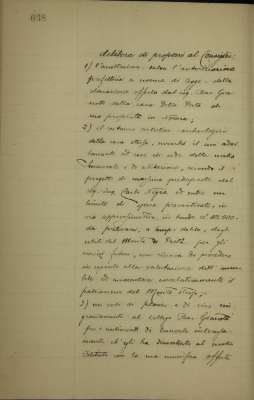 638
delibera di proporre al Consiglio:
1) l'accettazione - salva l'autorizzazione
prefettizia a norma di legge - della
donazione offerta dal sig. Cav. Gia
notti della casa Della Porta di
sua proprietà in Novara;
2) il restauro artistico - archeologico
della casa stessa, nonchè il suo adat
tamento ad uso di sede della nostra
succursale, e di abitazione, secondo il
progetto di massima predisposto dal
sig. Ing. Carlo Nigra ed entro un
limite di spesa preventivata, in
via approssimativa, in tonde L.
da prelevare, a tempo debito, dagli
utili del Monte di Pietà per gli
esercizi futuri, con riserva di procedere
in seguito alla valutazione dell'immo
bile ed aumentare correlativamente il
patrimonio del Monte stesso;
3) un voto di plauso e di vivo rin
graziamento al collega Cav. Gianotti
per i sentimenti di
mento ch'egli ha dimostrato al nostro
Istituto con la sua munifica offerta